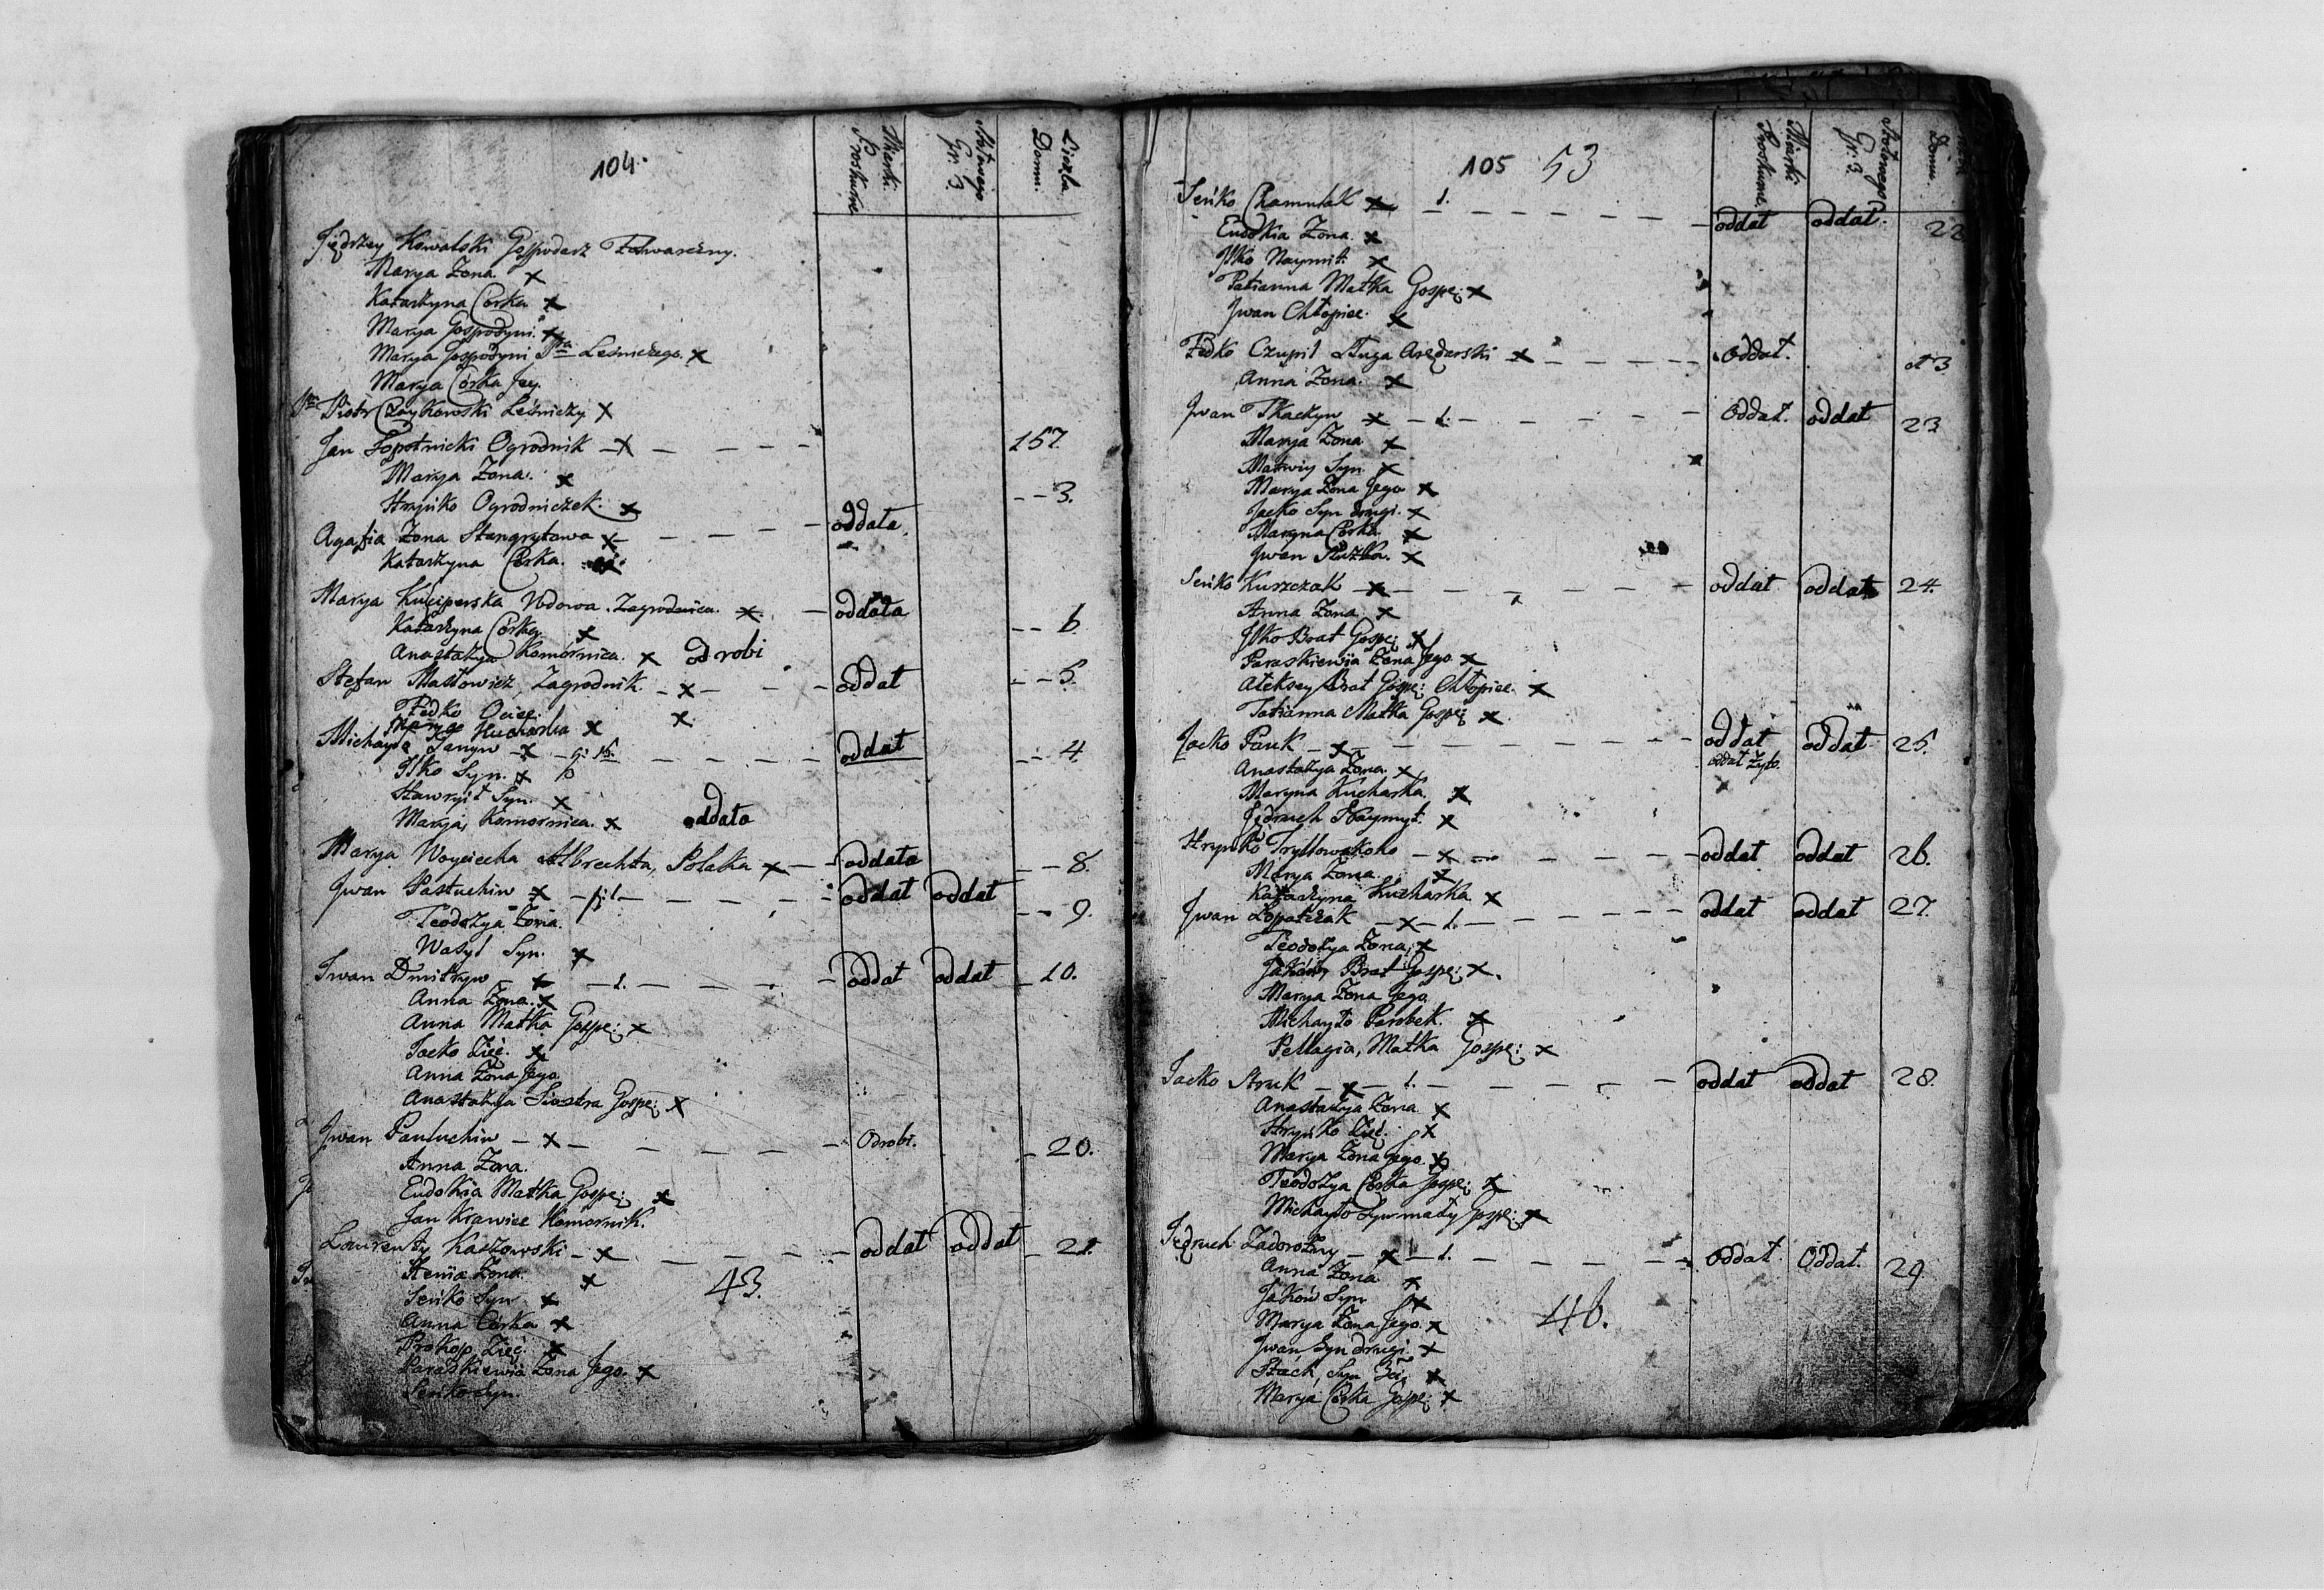 104.
Miarki Proskurne
Stołowego Gr: 3
Liczba Domu.
Jędrzey Kowalski Gospodarz Folwarczny.
Marya Zona x
Katarzyna Corka x
Marya Gospodyni x
Marya Gospodyni Pna Leśniczego. x
Marya Córka Jey.
Pan Piotr Czaykowski Leśniczy x
Jan Łopotnicki Ogrodnik - x - - - - 157
Marya Zona. x - - 3.
Hryńko Ogrodniczek. x
Agafia Zona Stangrytowa x - - - - - oddała.
Katarzyna Córka.
Marya Kuciperska Wdowa. Zagrodnica. x. - oddała - - 6.
Katarzyna Córka x
Anastazya Komornica. x odrobi
Stefan Masłowicz, Zagrodnik. - x - - - oddał - - 5.
Fedko Ociec. x.
Marya Kucharka x
Michayło Janyn - x - - - - - oddał - - 4.
Ilko Syn. x
Hawryił Syn. x
Marya, Komornica. x oddała
Marya Woyciecha Albrechta, Polaka x - - oddała - - 8.
Jwan Pastuchiw x - - - - - oddał oddał - - 9.
Teodozya Zona.
Wasyl Syn. x
Jwan Dmitryw - x - 1. - - - - oddał oddał - 10.
Anna Zona. x
Anna Matka Gospe: x
Jacko Zięć. x
Anna Zona Jego.
Anastazya Siostra Gospe: x
Jwan Pauluchiw - x - - - - - Odrobi. - 20.
Anna Zona.
Eudokia Matka Gospe: x
Jan Krawiec Komornik.
Laurenty Kaszowski - x - - - - oddał oddał - 21.
Zona. x 43.
Seńko Syn x
Anna Córka x
Prokop Zięć. x
Paraskiewia Zona Jego. x
Seńko Syn.
105 53
Miarki Proskurne.
Stołowego Gr: 3.
Domu.
Seńko Chamulak x - 1. - - - - - oddał oddał. 22
Eudokia Zona. x
Ilko Naymit. x
Tatianna Matka Gospe: x
Jwan Chłopiec. x
Fedko Czupil Sługa Arędarski x - - - - oddał. 3
Anna Zona. x
Jwan Tkaczyn x - 1. - - - - Oddał. oddał 23
Marya Zona x
Matwiy Syn x
Marya Zona Jego x
Jacko Syn drugi. x
Maryna Córka x
Jwan x
Seńko Kurszczak - x - - - - - - oddał oddał 24.
Anna Zona x
Ilko Brat Gospe: x
Paraskiewia Zona Jego x
Aleksey Brat Gospe: Chłopiec. x
Tatianna Matka Gospe: x
Jacko Pauk - x - - - - - - - oddał oddał 25.
oddał żyto.
Anastazya Zona. x
Maryna Kucharka. x
Jędruch Naymyt. x
Hryńko Tryłłowskoho - x - - - - oddał oddał 26.
Marya Zona. x
Katarzyna Kucharka x
Jwan Łopatczak - x - 1. - - - - - oddał oddał 27.
Teodozya Zona. x
Jaków, Brat Gospe: x.
Marya Zona Jego.
Michayło Parobek. x
Pellagia, Matka Gospe: x
Jacko Struk - x - 1. - - - - - oddał oddał 28.
Anastazya Zona x
Hryńko Zięć. x
Marya Zona Jego. x
Teodozya Córka Gospe: x
Michayło Syn mały Gospe: x
Jędruch Zadorożny - x - 1. - - - - oddał. Oddał. 29.
Anna Zona x
Jaków Syn x 46.
Marya Zona Jego. x
Jwan Syn drugi. x
Stach, Syn 3ci x
Marya Córka Gospe: x